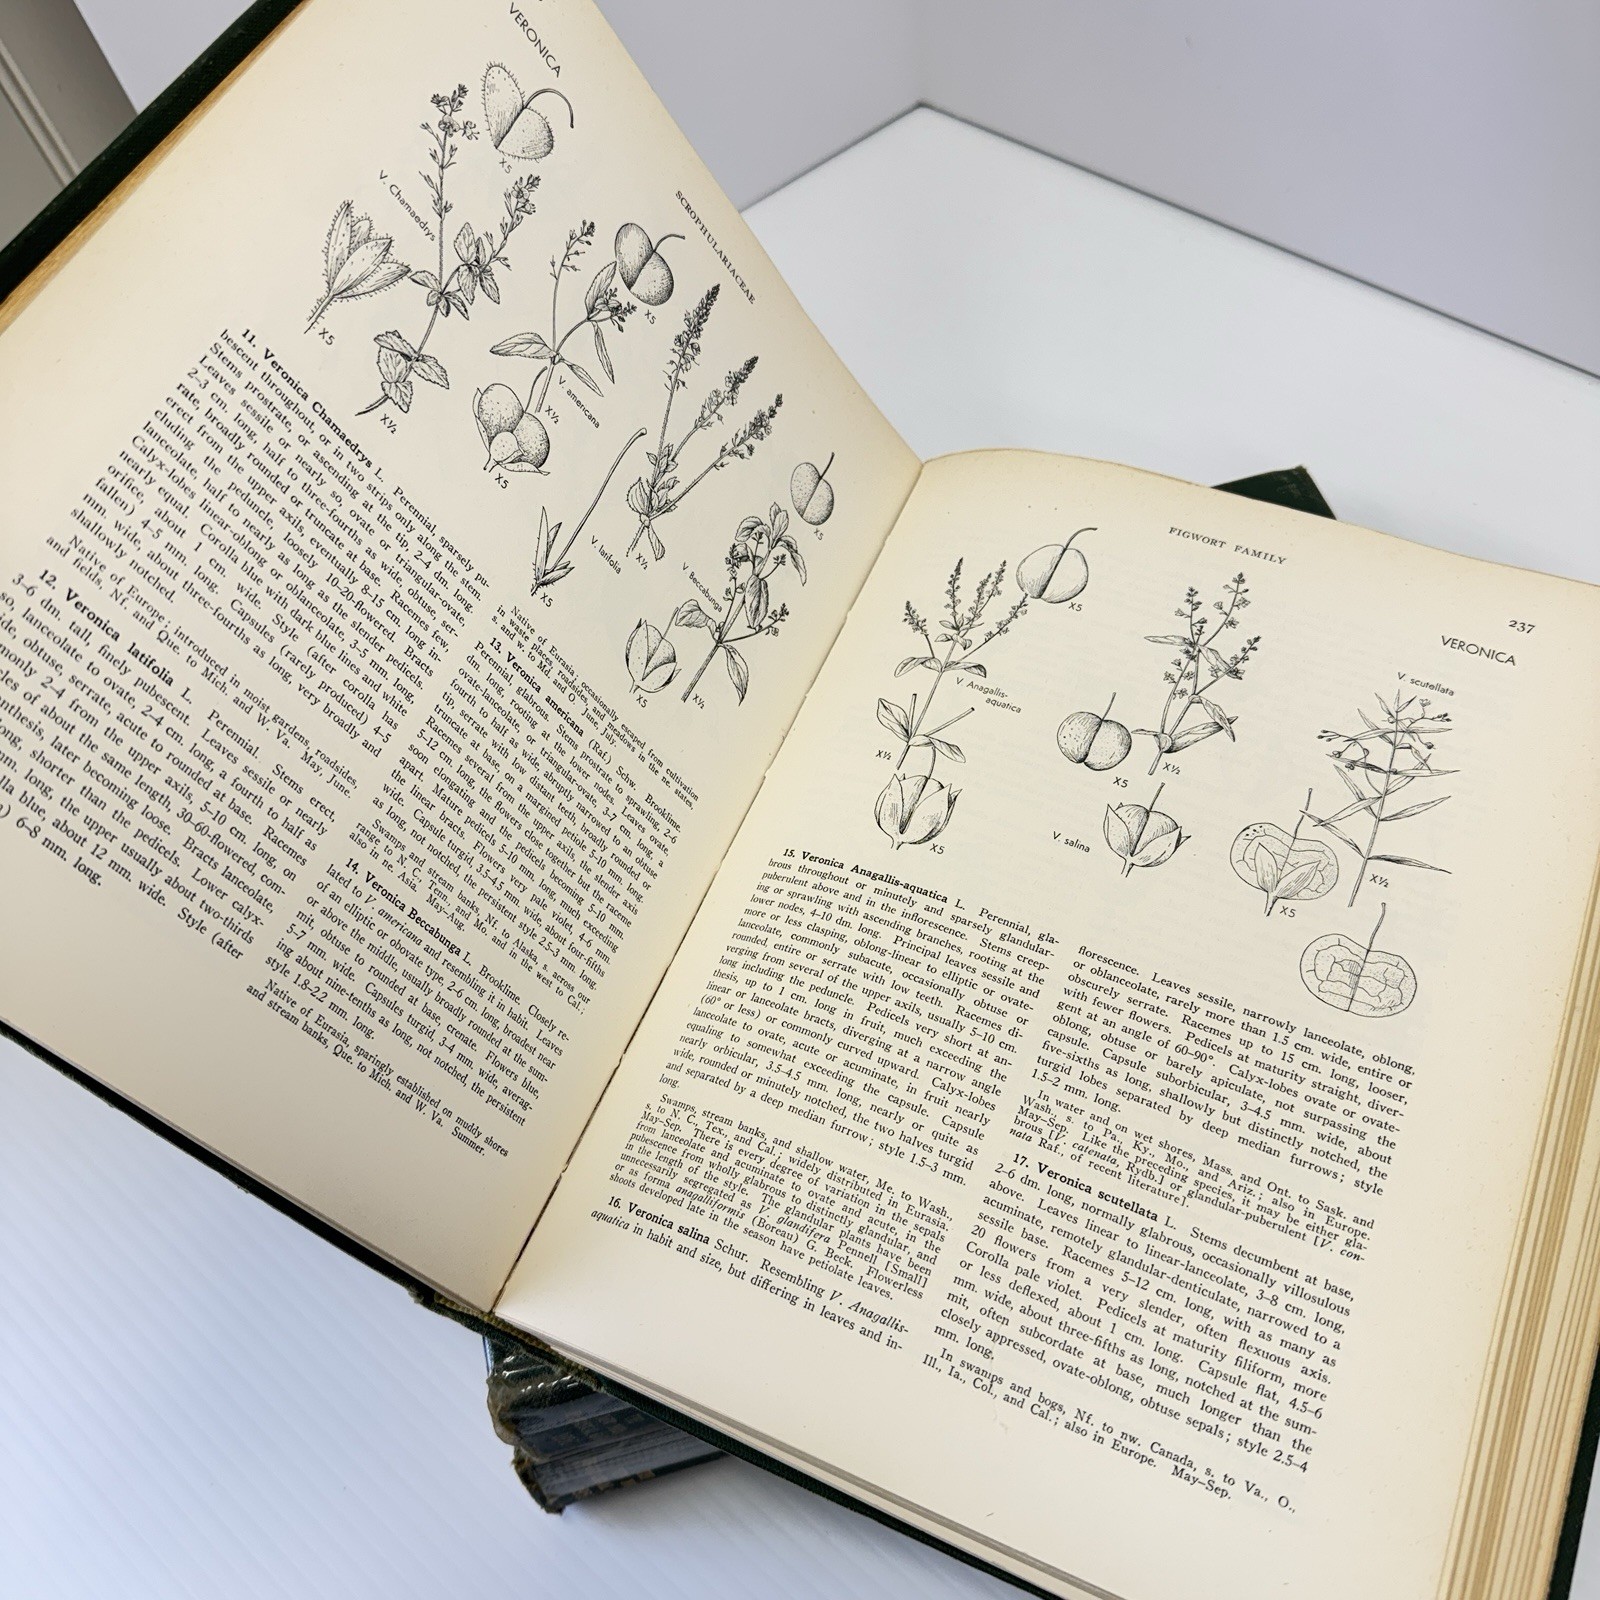 VERONICA
SCROPHULARIACEAE
X5
V. Chamaedrys
X5
X½
X5
V. americana
X½
X5
V. latifolia
X½
X5
X5
V. Beccabunga
X5
X½
11. Veronica Chamaedrys L. Perennial, sparsely pu-
bescent throughout, or in two strips only along the stem.
Stems prostrate, or ascending at the tip, 2–4 dm. long.
Leaves sessile or nearly so, ovate or triangular-ovate,
2–3 cm. long, half to three-fourths as wide, obtuse, ser-
rate, broadly rounded or truncate at base. Racemes few,
erect from the upper axils, eventually 8-15 cm. long in-
cluding the peduncle, loosely 10–20-flowered. Bracts
lanceolate, half to nearly as long as the slender pedicels.
Calyx-lobes linear-oblong or oblanceolate, 3–5 mm. long,
nearly equal. Corolla blue with dark blue lines and white
orifice, about 1 cm. wide. Style (after corolla has
fallen) 4–5 mm. long. Capsules (rarely produced) 4–5
mm. wide, about three-fourths as long, very broadly and
shallowly notched.
Native of Europe; introduced in moist gardens, roadsides,
and fields, Nf. and Que. to Mich. and W. Va. May, June.
12. Veronica latifolia L. Perennial. Stems erect,
3–6 dm. tall, finely pubescent. Leaves sessile or nearly
so, lanceolate to ovate, 2–4 cm. long, a fourth to half as
ide, obtuse, serrate, acute to rounded at base. Racemes
monly 2–4 from the upper axils, 5–10 cm. long, on
cles of about the same length, 30-60-flowered, com-
nthesis, later becoming loose. Bracts lanceolate,
ong, shorter than the pedicels. Lower calyx-
mm. long, the upper usually about two-thirds
lla blue, about 12 mm. wide. Style (after
) 6–8 mm. long.
Native of Eurasia; occasionally escaped from cultivation
in waste places, roadsides, and meadows in the ne. states,
s. and w. to Md. and O. June, July.
13. Veronica americana (Raf.) Schw. Brooklime.
Perennial, glabrous. Stems prostrate to sprawling, 2–6
dm. long, rooting at the lower nodes. Leaves ovate,
ovate-lanceolate, or triangular-ovate, 3–7 cm. long, a
fourth to half as wide, abruptly narrowed to an obtuse
tip, serrate with low distant teeth, broadly rounded or
truncate at base, on a margined petiole 5–10 mm. long.
Racemes several from the upper axils, the slender axis
5–12 cm. long, the flowers close together but the raceme
soon elongating and the pedicels becoming 5–10 mm.
apart. Mature pedicels 5–10 mm. long, much exceeding
the linear bracts. Flowers very pale violet, 4–6 mm.
wide. Capsule turgid, 3.5–4.5 mm. wide, about four-fifths
as long, not notched, the persistent style 2.5–3 mm. long.
Swamps and stream banks, Nf. to Alaska, s. across our
range to N. C., Tenn., and Mo. and in the west to Cal.;
also in ne. Asia. May–Aug.
14. Veronica Beccabunga L. Brooklime. Closely re-
lated to V. americana and resembling it in habit. Leaves
of an elliptic or obovate type, 2–6 cm. long, broadest near
or above the middle, usually broadly round at the sum-
mit, obtuse to rounded at base, crenate. Flowers blue,
5–7 mm. wide. Capsules turgid, 3–4 mm. wide, averag-
ing about nine-tenths as long, not notched, the persistent
style 1.8–2.2 mm. long.
Native of Eurasia, sparingly established on muddy shores
and stream banks, Que. to Mich. and W. Va. Summer.
FIGWORT FAMILY
237
VERONICA
X5
V. Anagallis-
aquatica
X½
X5
X5
X½
V. salina
V. scutellata
X½
X5
15. Veronica Anagallis-aquatica L. Perennial, gla-
brous throughout or minutely and sparsely glandular-
puberulent above and in the inflorescence. Stems creep-
ing or sprawling with ascending branches, rooting at the
lower nodes, 4–10 dm. long. Principal leaves sessile and
more or less clasping, oblong-linear to elliptic or ovate-
lanceolate, commonly subacute, occasionally obtuse or
rounded, entire or serrate with low teeth. Racemes di-
verging from several of the upper axils, usually 5–10 cm.
long including the peduncle. Pedicels very short at an-
thesis, up to 1 cm. long in fruit, much exceeding the
linear or lanceolate bracts, diverging at a narrow angle
(60° or less) or commonly curved upward. Calyx-lobes
lanceolate to ovate, acute or acuminate, in fruit nearly
equaling to somewhat exceeding the capsule. Capsule
nearly orbicular, 3.5–4.5 mm. long, nearly or quite as
wide, rounded or minutely notched, the two halves turgid
and separated by a deep median furrow; style 1.5–3 mm.
long.
Swamps, stream banks, and shallow water, Me. to Wash.,
s. to N. C., Tex., and Cal.; widely distributed in Eurasia.
May–Sep. There is every degree of variation in the sepals
from lanceolate and acuminate to ovate and acute, in the
pubescence from wholly glabrous to distinctly glandular, and
in the length of the style. The glandular plants have been
unnecessarily segregated as V. glandifera Pennell [Small]
or as forma anagalliformis (Boreau) G. Beck. Flowerless
shoots developed late in the season have petiolate leaves.
16. Veronica salina Schur. Resembling V. Anagallis-
aquatica in habit and size, but differing in leaves and in-
florescence. Leaves sessile, narrowly lanceolate, oblong,
or oblanceolate, rarely more than 1.5 cm. wide, entire or
obscurely serrate. Racemes up to 15 cm. long, looser,
with fewer flowers. Pedicels at maturity straight, diver-
gent at an angle of 60–90°. Calyx-lobes ovate or ovate-
oblong, obtuse or barely apiculate, not surpassing the
capsule. Capsule suborbicular, 3–4.5 mm. wide, about
five-sixths as long, shallowly but distinctly notched, the
turgid lobes separated by deep median furrows; style
1.5–2 mm. long.
In water and on wet shores, Mass. and Ont. to Sask. and
Wash., s. to Pa., Ky., Mo., and Ariz.; also in Europe.
May–Sep. Like the preceding species, it may be either gla-
brous [V. catenata, Rydb.] or glandular-puberulent [V. con-
nata Raf., of recent literature].
17. Veronica scutellata L. Stems decumbent at base,
2–6 dm. long, normally glabrous, occasionally villosulous
above. Leaves linear to linear-lanceolate, 3–8 cm. long,
acuminate, remotely glandular-denticulate, narrowed to a
sessile base. Racemes 5–12 cm. long, with as many as
20 flowers from a very slender, often flexuous axis.
Corolla pale violet. Pedicels at maturity filiform, more
or less deflexed, about 1 cm. long. Capsule flat, 4.5–6
mm. wide, about three-fifths as long, notched at the sum-
mit, often subcordate at base, much longer than the
closely appressed, ovate-oblong, obtuse sepals; style 2.5–4
mm. long.
In swamps and bogs, Nf. to nw. Canada, s. to Va., O.,
Ill., Ia., Col., and Cal.; also in Europe. May–Sep.